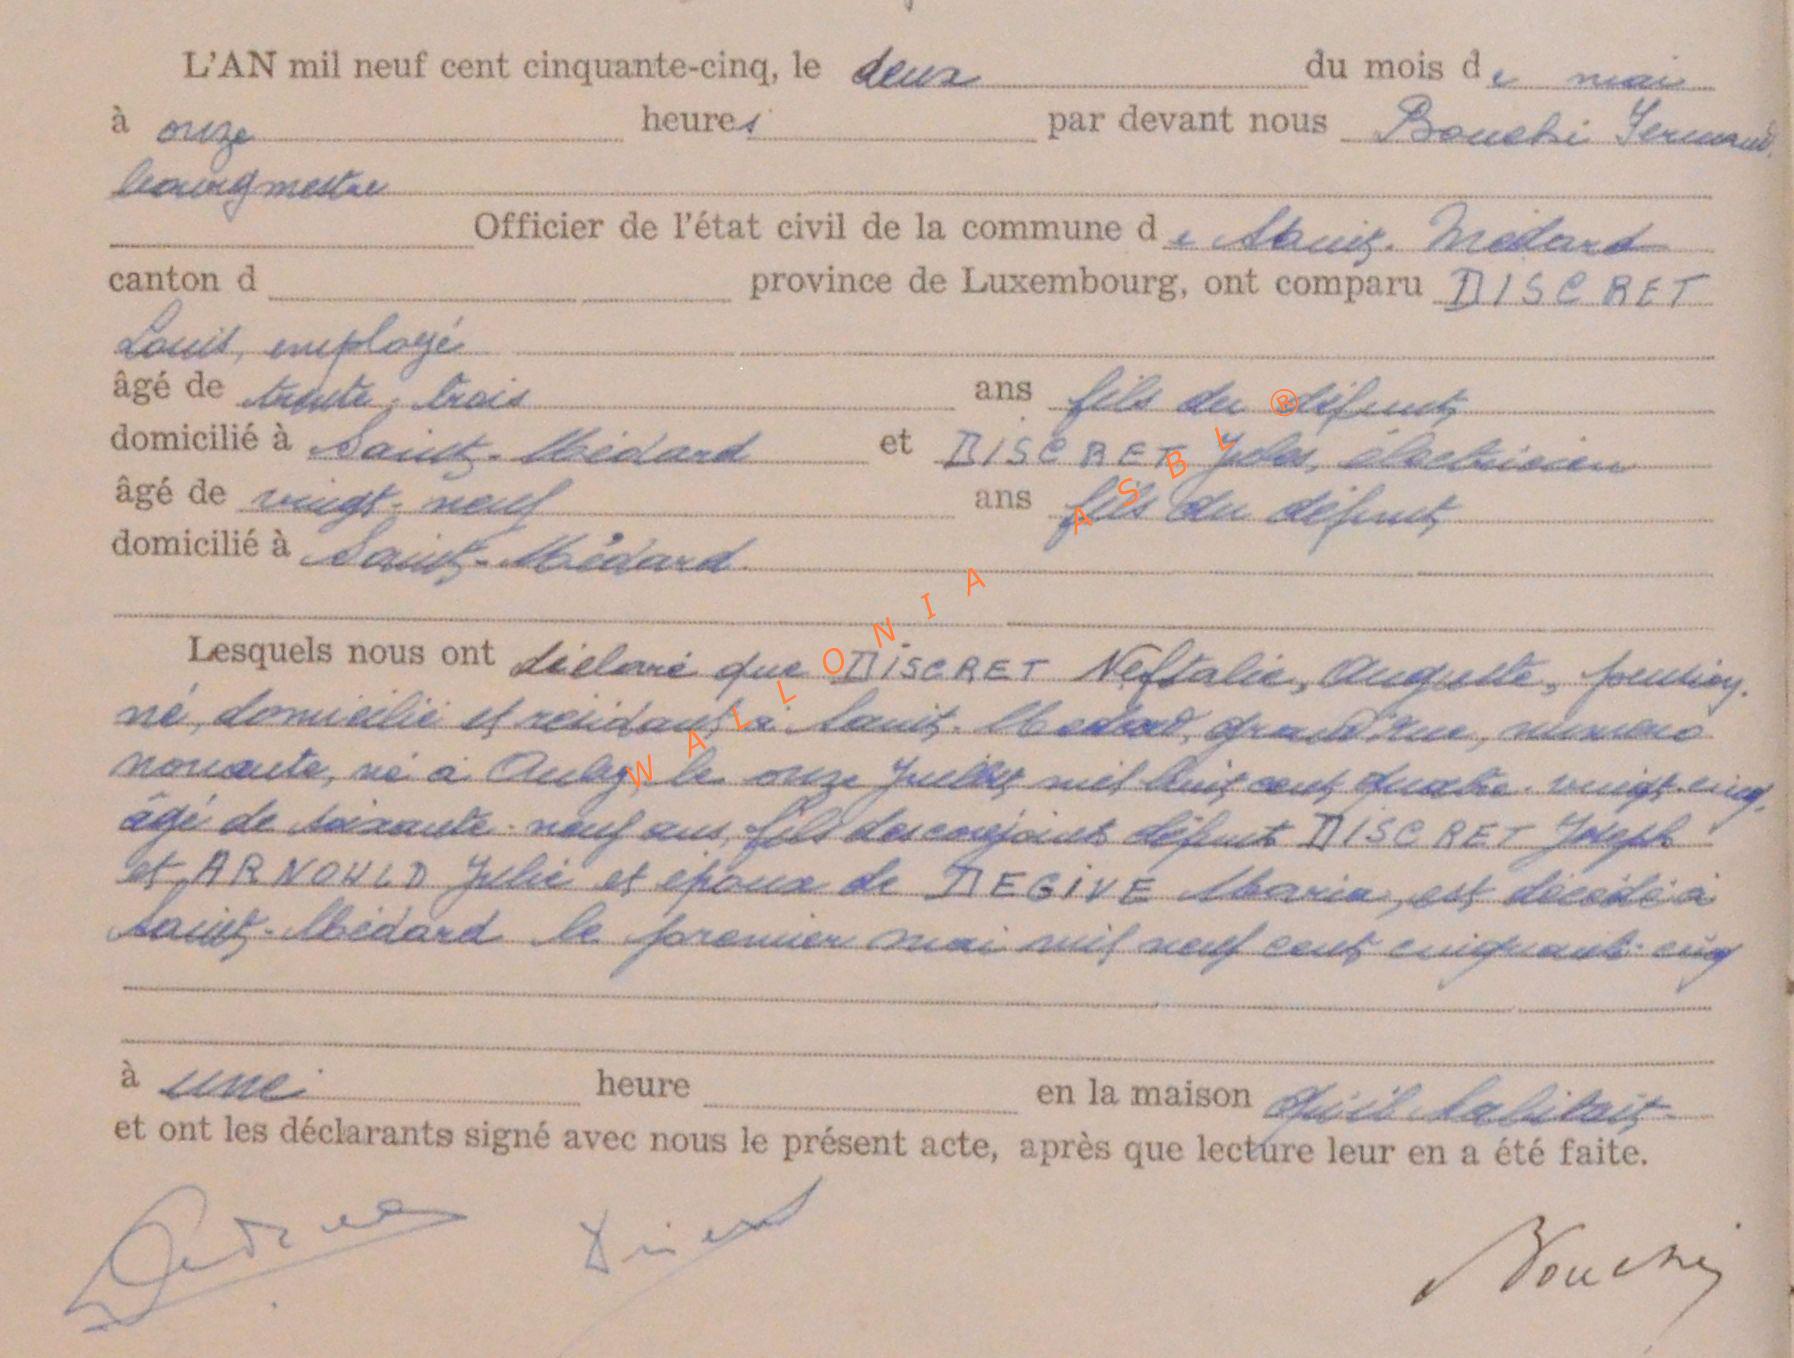 L'AN mil neuf cent cinquante-cinq, le deux du mois de mai
à onze heures par devant nous Bouché Fernand,
bourgmestre
Officier de l'état civil de la commune de Saint-Médard
canton d province de Luxembourg, ont comparu DISCRET
Louis, employé
âgé de trente-trois ans fils du défunt,
domicilié à Saint-Médard et DISCRET Jules, électricien
âgé de vingt-neuf ans fils du défunt,
domicilié à Saint-Médard.
Lesquels nous ont déclaré que DISCRET Neftalie, Auguste, pension-
né, domicilié et résidant à Saint-Médard, grand'rue, numéro
nonante, né à Auby, le onze Juillet mil huit cent quatre-vingt-cinq,
âgé de soixante-neuf ans, fils des conjoints défunts DISCRET Joseph
et ARNOULD Julie et époux de DEGIVE Maria, est décédé à
Saint-Médard le premier mai mil neuf cent cinquante-cinq
à une heure en la maison qu'il habitait.
et ont les déclarants signé avec nous le présent acte, après que lecture leur en a été faite.
Bouché
WALLONIA ASBL ®